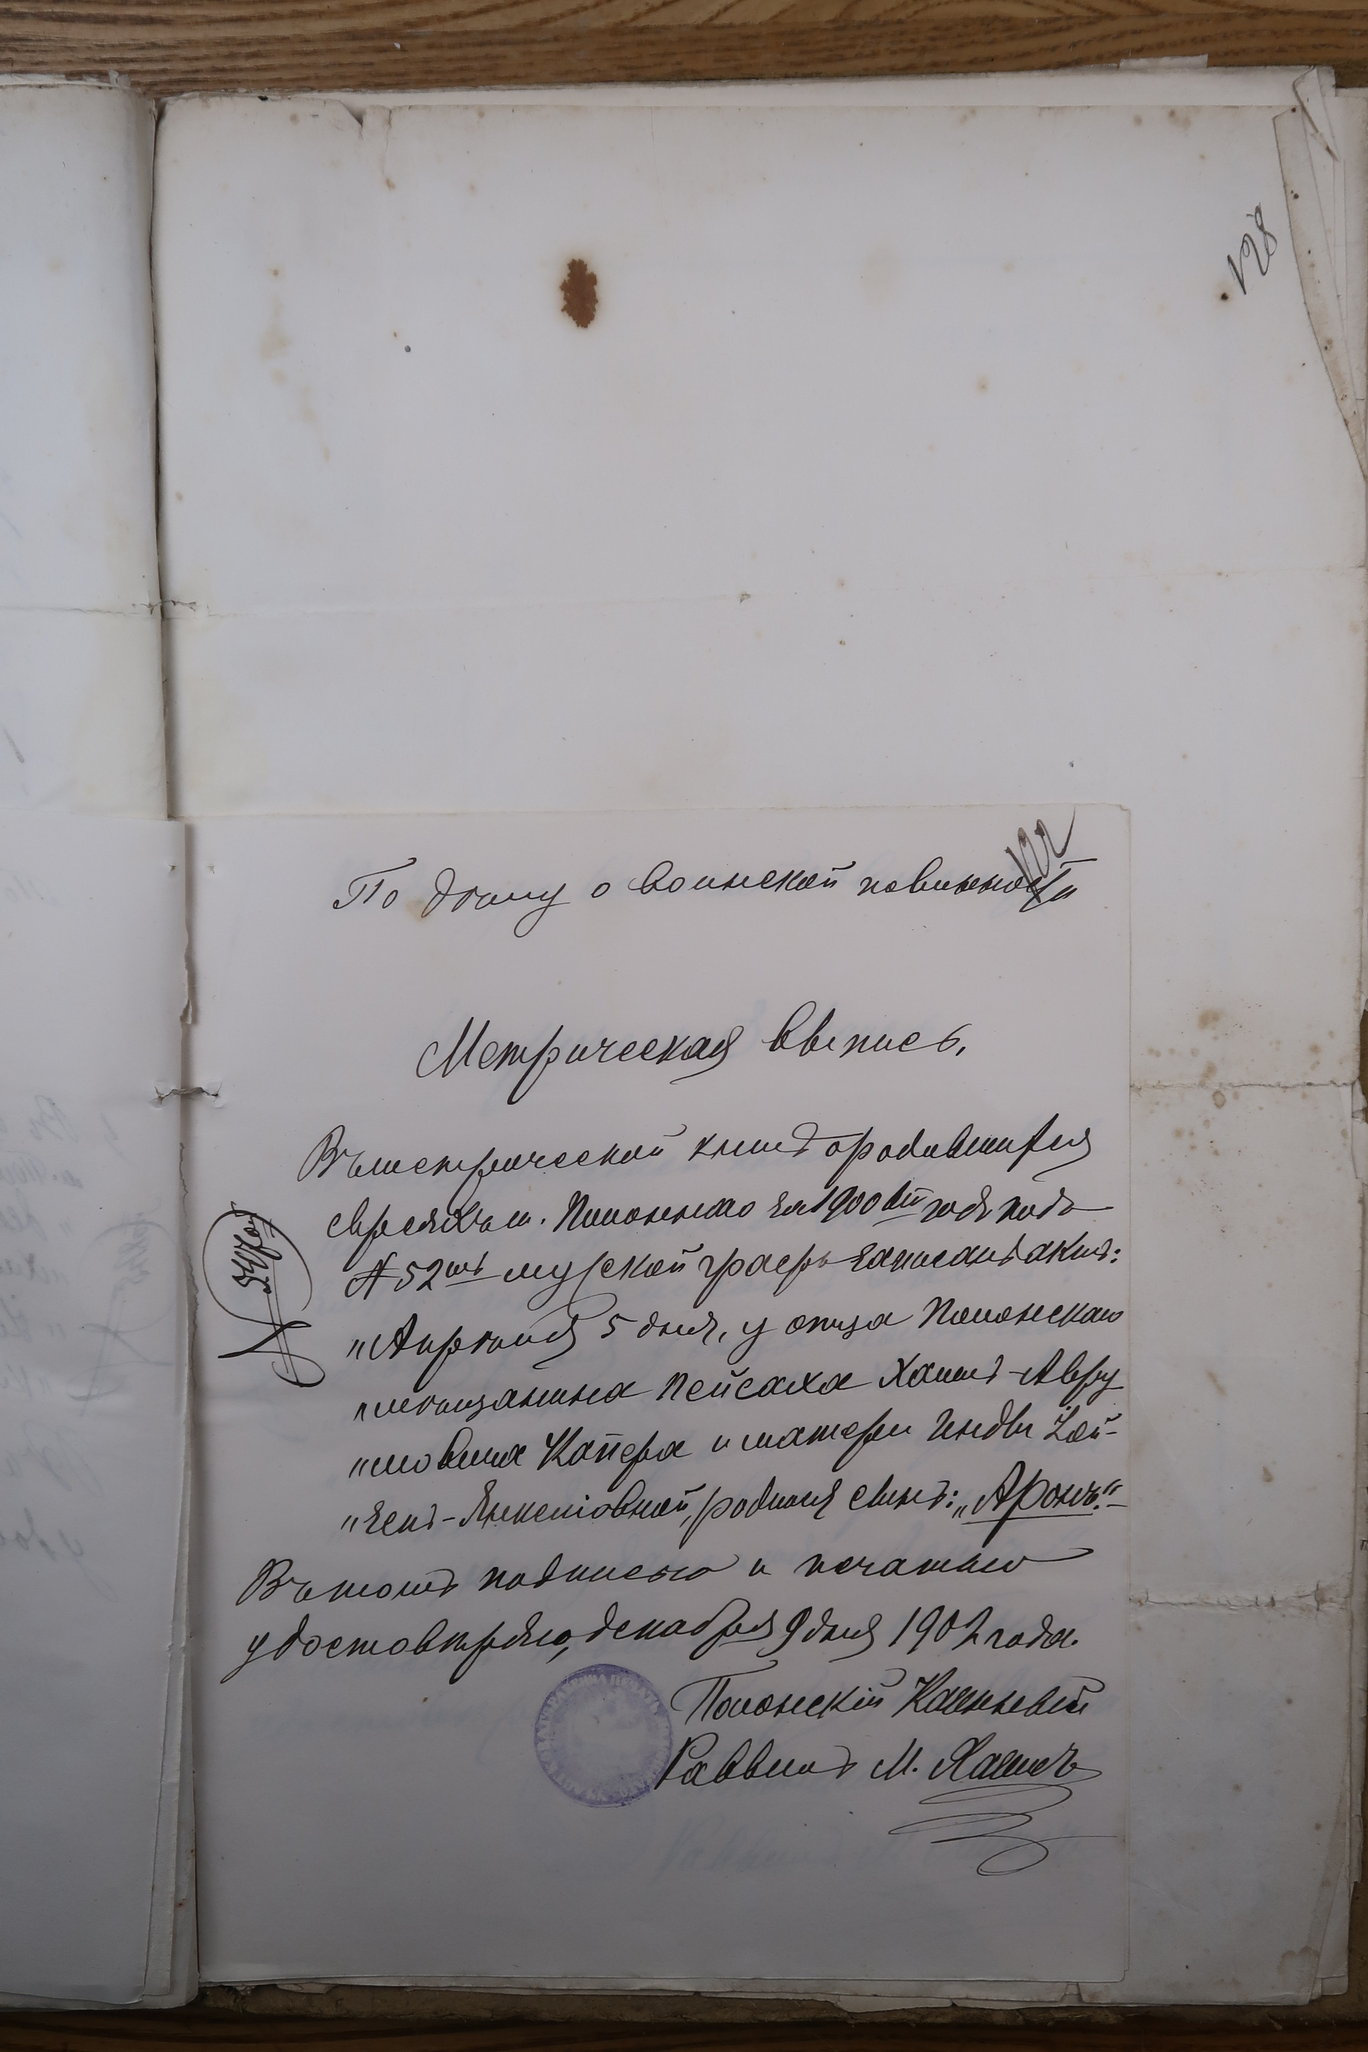 128
122
По дѣлу о воинской повинности
Метрическая выпись.
Въ метрической книгѣ о родившихся
евреяхъ м. Полоннаго за 1900ый годъ подъ
№ 52мъ мужской графы записанъ актъ:
"Апрѣля 5 дня, у отца Полонскаго
"мѣщанина Пейсаха Хаимъ-Авру
"мовича Капера и матери Инды Зей-
"зель-Янкелевной, родился сынъ: "Аронъ."
Въ томъ подписью и печатью
удостовѣряю, декабря 9 дня 1902 года.
Полонскій Казенный
Раввинъ М.